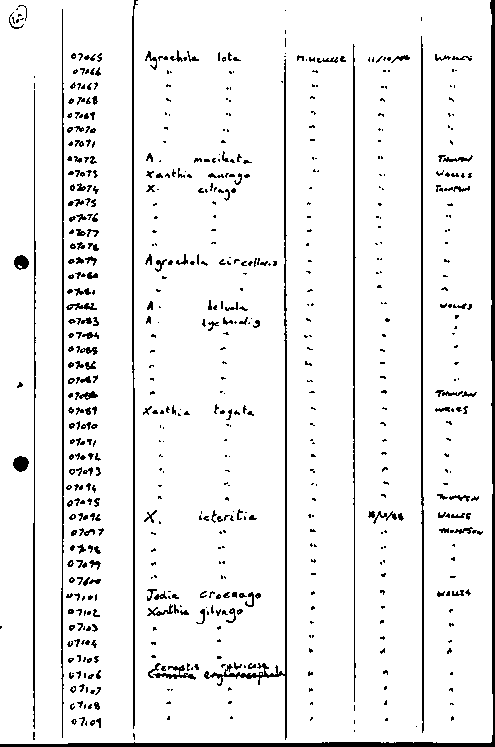 07065 Agrochola lota M.HEUSSE 11/10/88 WALLES
07066 " " " " "
07067 " " " " "
07068 " " " " "
07069 " " " " "
07070 " " " " "
07071 " " " " "
07072 A. macilenta " " THOMPSON
07073 Xanthia aurago " " WALLES
07074 X. citrago " " THOMPSON
07075 " " " " "
07076 " " " " "
07077 " " " " "
07078 " " " " "
07079 Agrochola circellaris " " "
07080 " " " " "
07081 " " " " "
07082 A. helvola " " WALLES
07083 A. lychnidis " " "
07084 " " " " "
07085 " " " " "
07086 " " " " "
07087 " " " " "
07088 " " " " THOMPSON
07089 Xanthia togata " " WALLES
07090 " " " " "
07091 " " " " "
07092 " " " " "
07093 " " " " "
07094 " " " " "
07095 " " " " THOMPSON
07096 X. icteritia " WALLES
07097 " " " " THOMPSON
07098 " " " " "
07099 " " " " "
07100 " " " " "
07101 Jodia croceago " " WALLES
07102 Xanthia gilvago " " "
07103 " " " " "
07104 " " " " "
07105 " " " " "
07106 " " "
07107 " " " " "
07108 " " " " "
07109 " " " " "